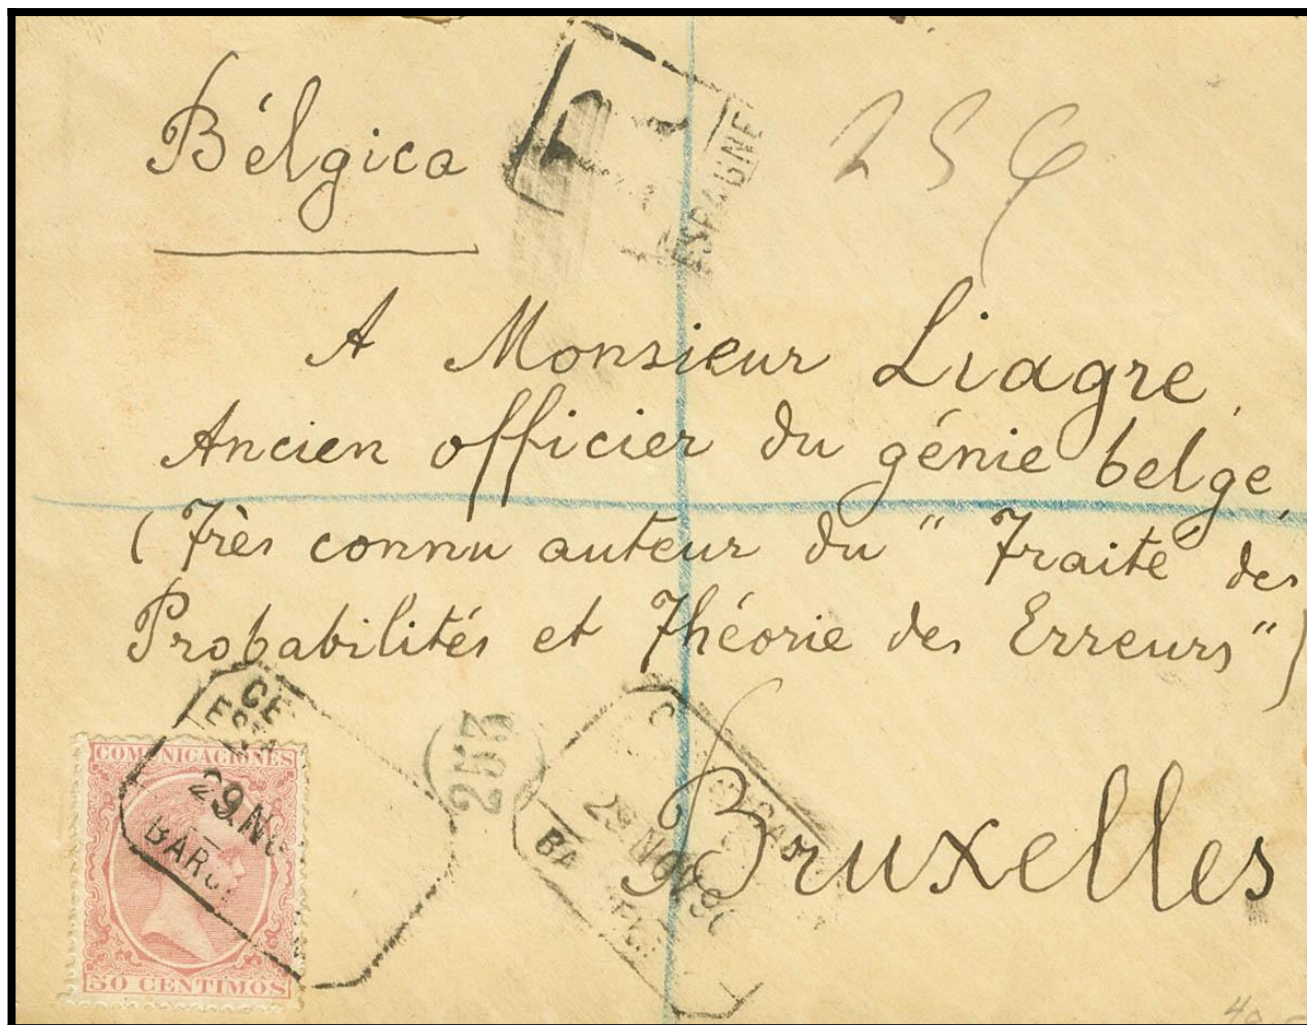 Bélgica
R
ESPAGNE
256
A Monsieur Liagre,
Ancien officier du génie belge,
(Très connu auteur du "Traité des
Probabilités et Théorie des Erreurs")
Bruxelles
253
29 NOV 90
COMUNICACIONES
29 NO
BARC
50 CENTIMOS
40